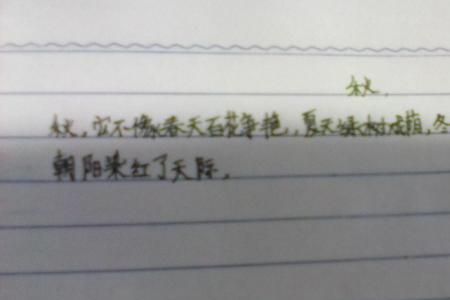 秋.
秋,它不像春天百花争艳,夏天绿树成荫,冬
朝阳染红了天际.